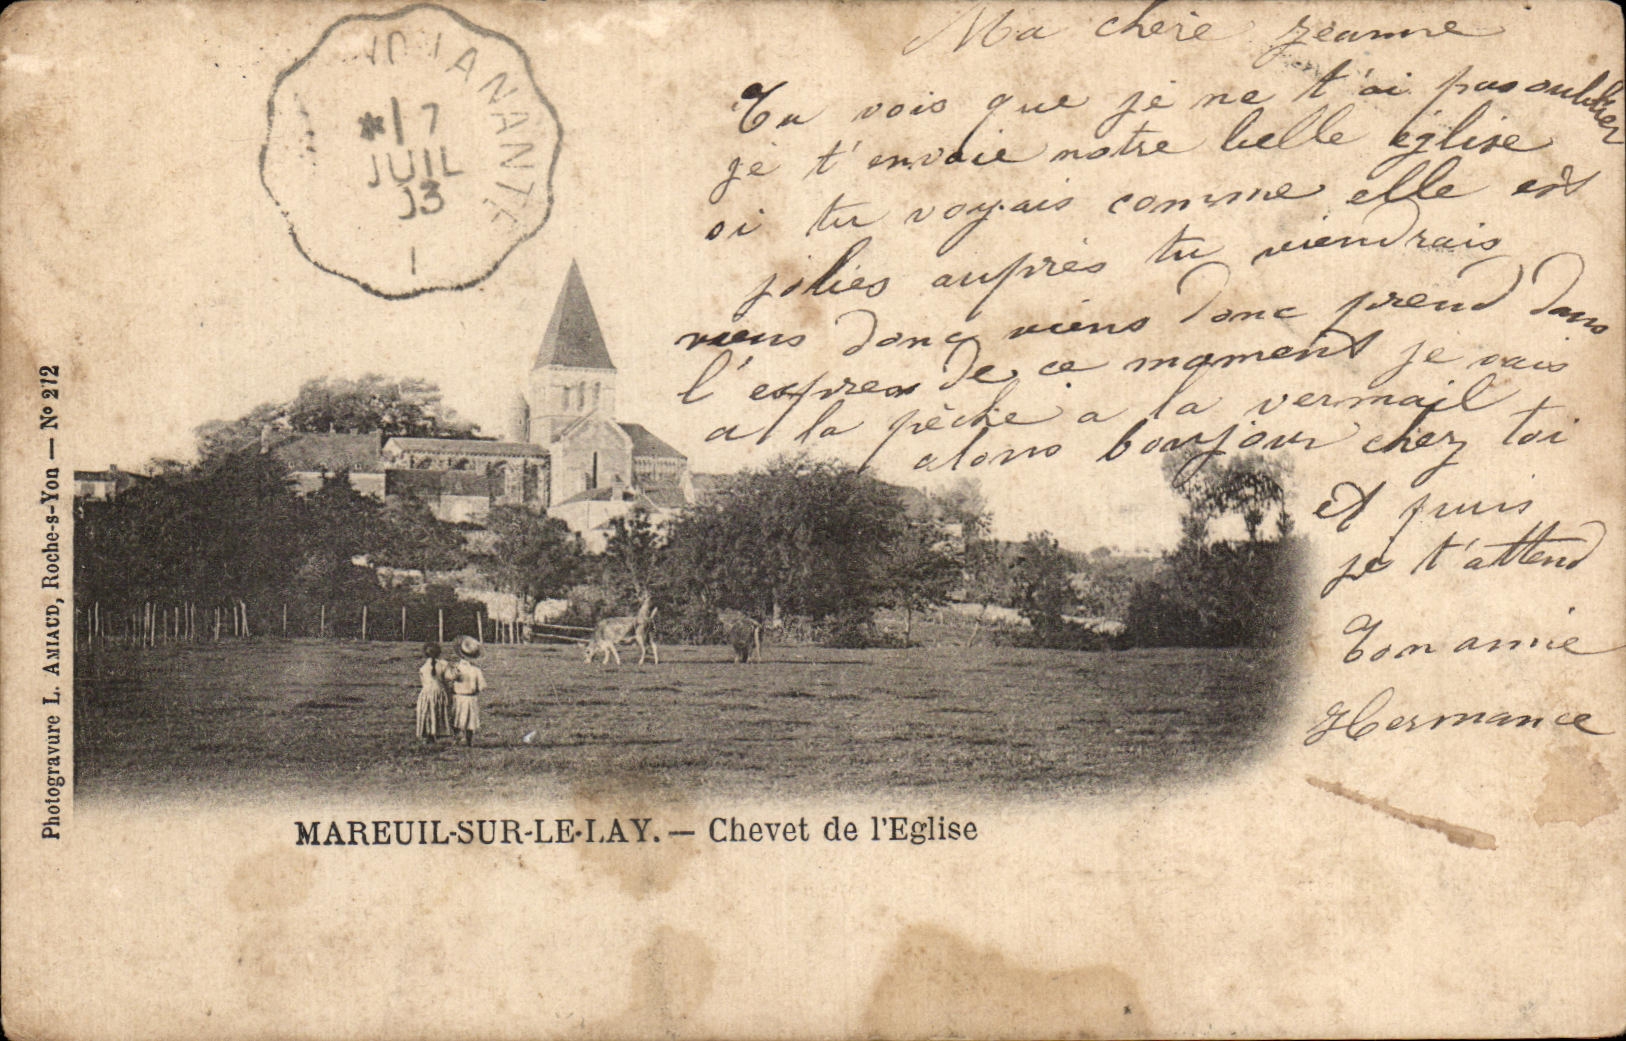 Ma chere Jeanne
Tu vois que je ne t'ai pas oublier
je t'envoie notre belle église
si tu voyais comme elle est
jolies auprès tu viendrais
viens donc viens donc prend dans
l'expres de ce moment je vais
a la pêche a la vermail
alons bonjour chez toi
et puis
je t'attend
Ton amie
Hermance
NANTE
*17
JUIL
13
Photogravure L. AMIAUD, Roche-s-Yon — Nº 272
MAREUIL-SUR-LE-LAY. — Chevet de l'Eglise